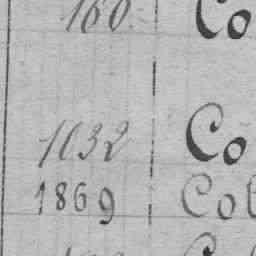 160. Co
1032 Co
1869 Col